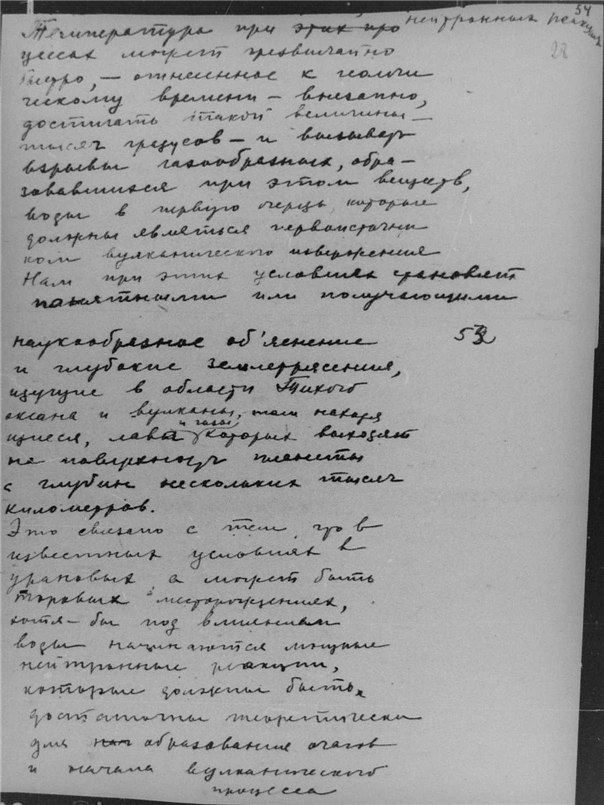 54
22
Температура при этих про нейтронных реакциях
цессах может чрезвычайно
быстро, – отнесенное к геологи
ческому времени – внезапно,
достигать такой величины –
тысяч градусов – и вызывать
взрывы газообразных, обра-
зовавшихся при этом веществ,
воды в первую очередь которые
должны являться первоисточни
ком вулканического извержения
Нам при этих условиях становятся
понятными или получающими
наукообразное об'яснение
53
и глубокие землетрясения,
идущие в области Тихого
океана и вулканы, там находя
щиеся, лава и газы которых выходят
на поверхность планеты
с глубин нескольких тысяч
километров.
Это связано с тем, что в
известных условиях в
урановых, а может быть
ториевых месторождениях,
хотя-бы под влиянием
воды начинаются мощные
нейтронные реакции,
которые должны быть
достаточны теоретически
для образования очагов
и начала вулканического
процесса